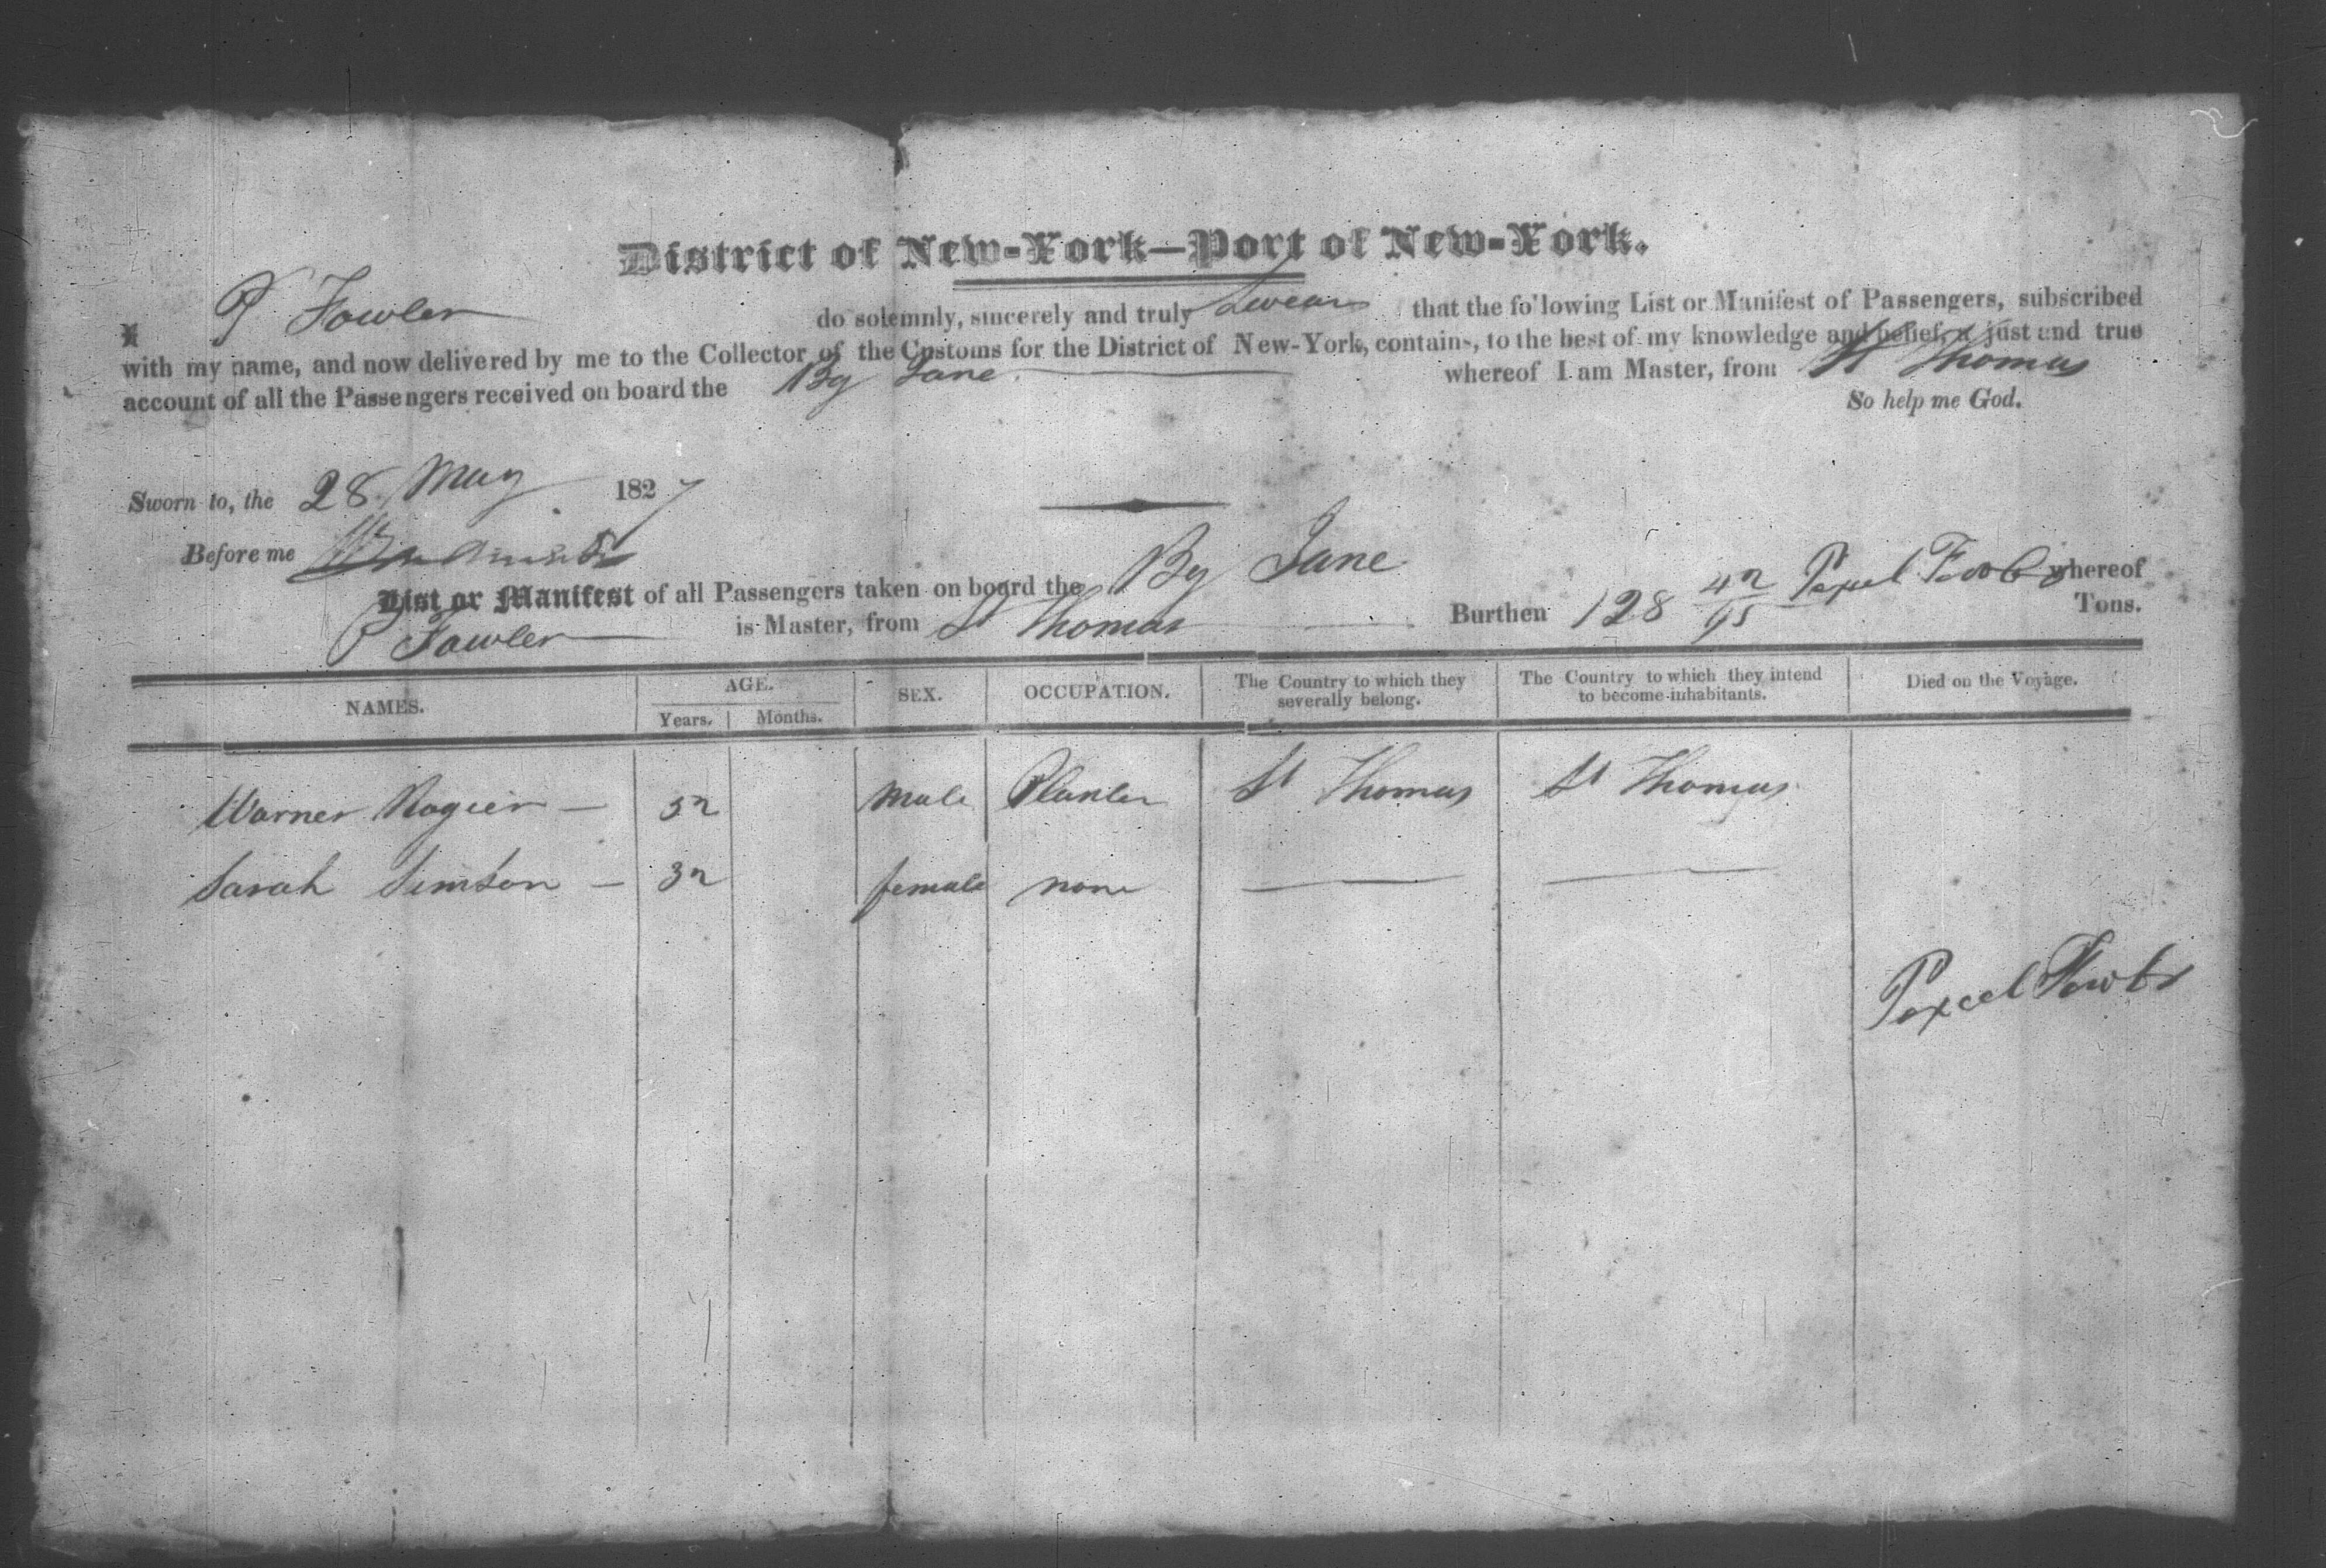 District of New-York—Port of New-York.
I P Fowler do solemnly, sincerely and truly Swear that the following List or Manifest of Passengers, subscribed
with my name, and now delivered by me to the Collector of the Customs for the District of New-York, contains, to the best of my knowledge and belief, a just and true
account of all the Passengers received on board the Bg Jane whereof I am Master, from St Thomas
So help me God.
Sworn to, the 28 May 1827
Before me
List or Manifest of all Passengers taken on board the Bg Jane whereof
P Fowler is Master, from St Thomas Burthen 128 42/95 Tons.
NAMES. AGE. SEX. OCCUPATION. The Country to which they severally belong. The Country to which they intend to become inhabitants. Died on the Voyage.
Years. Months.
Warner Rogier — 52 male Planter St Thomas St Thomas
Sarah Simson — 32 female none — —